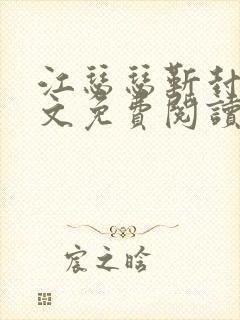 江瑟瑟靳封
文免費閱讀
宸之晗